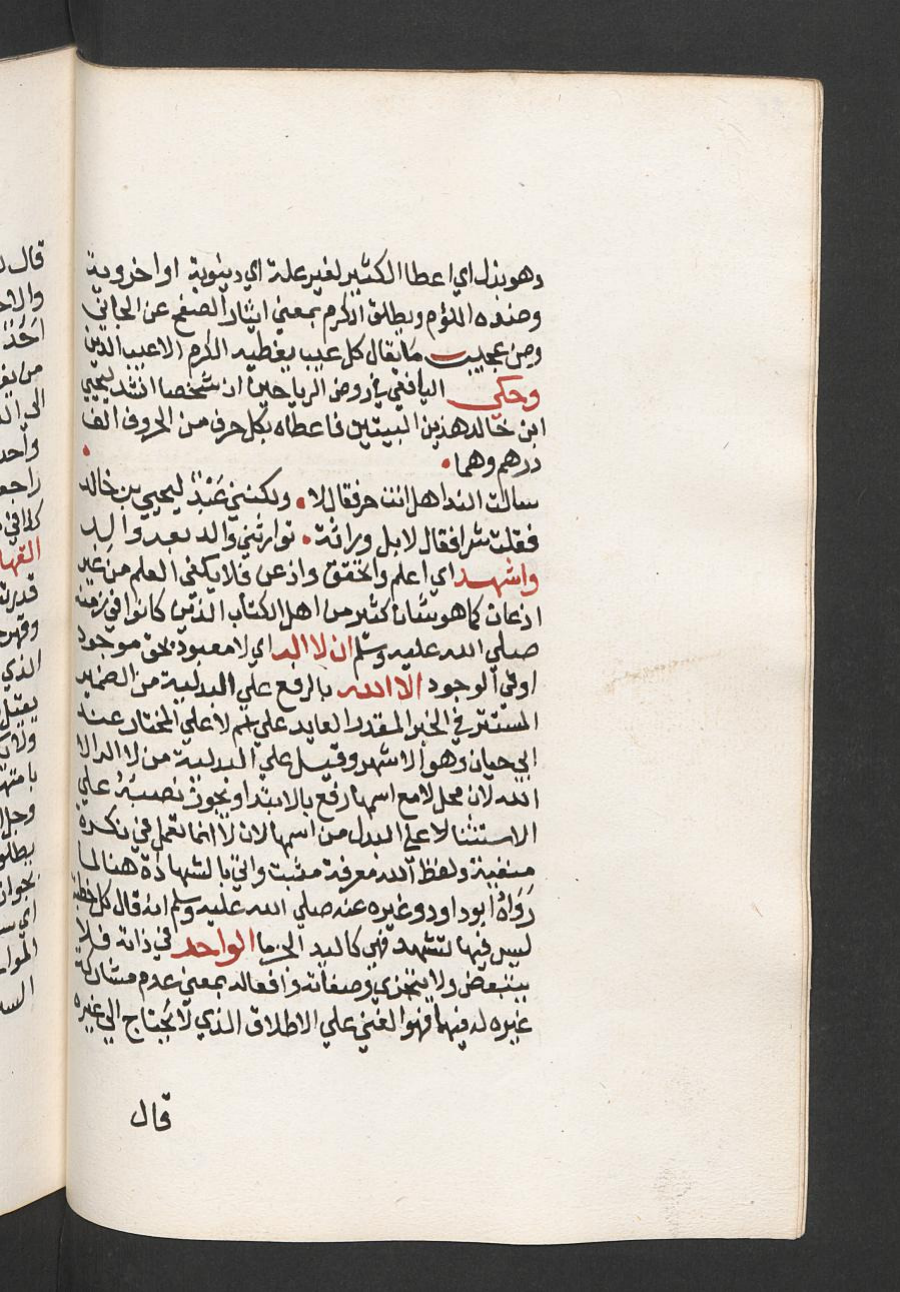 وهو بذل اي اعطا الكثير لغير علة اي دينوية او اخروية
وضده اللؤم ويطلق الكرم بمعني ايثار الصفح عن الجاني
ومن عجيب ما يقال كل عيب يغطيه الكرم الا عيب الدين
وحكي اليافعي في روض الرياحين ان شخصا انشد ليحيي
ابن خالد هذين البيتين فاعطاه بكل حرف من الحروف الف
درهم وهما
سالت الندا هل انت حر فقال لا ولكنني عَبْدٌ ليحيي بن خالد
فقلت شرا فقال لا بل وراثة توارثني والد بعد والد
واشهد اي اعلم واتحقق واذعن فلا يكفي العلم من غير
اذعان كما هو شان كثير من اهل الكتاب الذين كانوا في زمنه
صلي الله عليه وسلم ان لا اله اي لا معبود بحق موجود
او في الوجود الا الله بالرفع علي البدلية من الضمير
المستتر في الخبر المقدر العايد علي اسم لا علي المختار عند
ابي حيان وهو الاشهر وقيل علي البدلية من لا اله الا
الله لان محل لا مع اسمها رفع بالابتدا ويجوز نصبه علي
الاستثنا لا علي البدل من اسمها لان لا انما تعمل في نكرة
منفية ولفظ الله معرفة مثبت واتي بالشهادة هنا لما
رَوَاهُ ابو داود وغيره عنه صلي الله عليه وسلم انه قال كل خطبة
ليس فيها تشهد فهي كاليد الجرما الواحد في ذاته فلا
يتبعض ولا يتجزي وصفاته وافعاله بمعني عدم مشاركة
غيره له فيها فهو الغني علي الاطلاق الذي لا يُحتاج الي غيره
قال